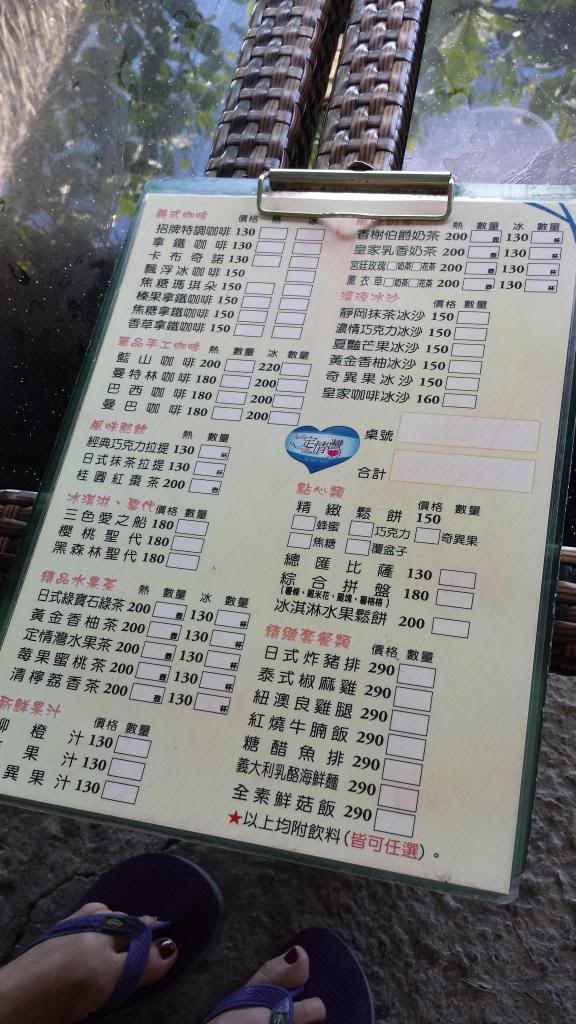 義式咖啡 價格 熱 冰
招牌特調咖啡 130
拿鐵咖啡 130
卡布奇諾 130
飄浮冰咖啡 150
焦糖瑪琪朵 150
榛果拿鐵咖啡 150
焦糖拿鐵咖啡 150
香草拿鐵咖啡 150
單品手工咖啡 熱 數量 冰 數量
藍山咖啡 200 220
曼特林咖啡 180 200
巴西咖啡 180 200
曼巴咖啡 180 200
風味熱飲 熱 數量
經典巧克力拉提 130 杯
日式抹茶拉提 130 杯
桂圓紅棗茶 200 壺
冰淇淋、聖代 價格 數量
三色愛之船 180
櫻桃聖代 180
黑森林聖代 180
精品水果茶 熱 數量 冰 數量
日式綠寶石綠茶 200 壺 130 杯
黃金香柚茶 200 壺 130 杯
定情灣水果茶 200 壺 130 杯
莓果蜜桃茶 200 壺 130 杯
清檸荔香茶 200 壺 130 杯
新鮮果汁 價格 數量
柳橙汁 130
果汁 130
異果汁 130
熱 數量 冰 數量
香榭伯爵奶茶 200 壺 130 杯
皇家乳香奶茶 200 壺 130 杯
宮廷玫瑰 奶茶 花茶 200 壺 130 杯
薰衣草 奶茶 花茶 200 壺 130 杯
清涼冰沙 價格 數量
靜岡抹茶冰沙 150
濃情巧克力冰沙 150
夏豔芒果冰沙 150
黃金香柚冰沙 150
奇異果冰沙 150
皇家咖啡冰沙 160
定情灣
桌號
合計
點心類 價格 數量
精緻鬆餅 150
蜂蜜 巧克力 奇異果
焦糖 覆盆子
總匯比薩 130
綜合拼盤 180
(薯條、雞米花、雞塊、薯格格)
冰淇淋水果鬆餅 200
精緻套餐類 價格 數量
日式炸豬排 290
泰式椒麻雞 290
紐澳良雞腿 290
紅燒牛腩飯 290
糖醋魚排 290
義大利乳酪海鮮麵 290
全素鮮菇飯 290
★以上均附飲料(皆可任選)。